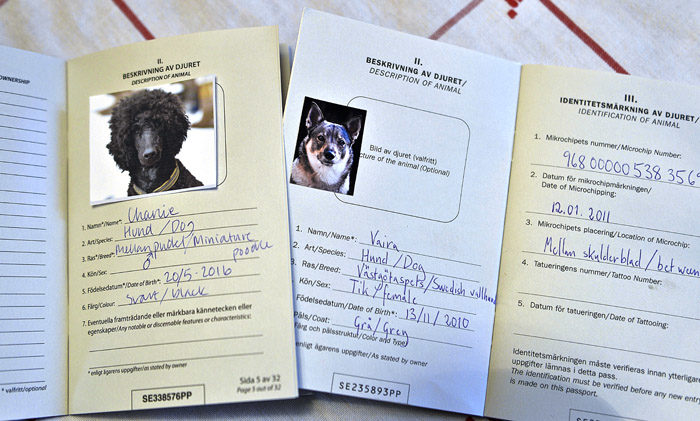 OWNERSHIP
* valfritt/optional
II.
BESKRIVNING AV DJURET/
DESCRIPTION OF ANIMAL
1. Namn*/Name*: Charlie
2. Art/Species: Hund/Dog
3. Ras*/Breed*: Mellanpudel/Miniature poodle
4. Kön/Sex: ♂
5. Födelsedatum*/Date of Birth*: 20/5-2016
6. Färg/Colour: Svart/black
7. Eventuella framträdande eller märkbara kännetecken eller
egenskaper/Any notable or discernable features or characteristics:
*enligt ägarens uppgifter/as stated by owner
SE338576PP
Sida 5 av 32
Page 5 of 32
II.
BESKRIVNING AV DJURET/
DESCRIPTION OF ANIMAL
Bild av djuret (valfritt)
cture of the animal (Optional)
1. Namn/Name*: Vaira
2. Art/Species: Hund/Dog
3. Ras/Breed*: Västgötaspets/Swedish vallhund
Kön/Sex: Tik/female
Födelsedatum/Date of Birth*: 13/11/2010
Päls/Coat: Grå/Grey
Färg och pälsstruktur/Color and type)
enligt ägarens uppgifter/As stated by owner
SE235893PP
III.
IDENTITETSMÄRKNING AV DJURET/
IDENTIFICATION OF ANIMAL
1. Mikrochipets nummer/Microchip Number:
968 00000 538 356
2. Datum för mikrochipmärkningen/
Date of Microchipping:
12.01.2011
3. Mikrochipets placering/Location of Microchip:
Mellan skulderblad/between
4. Tatueringens nummer/Tattoo Number:
5. Datum för tatueringen/Date of Tattooing:
Identitetsmärkningen måste verifieras innan ytterligar
uppgifter lämnas i detta pass.
The identification must be verified before any new entry
is made on this passport.